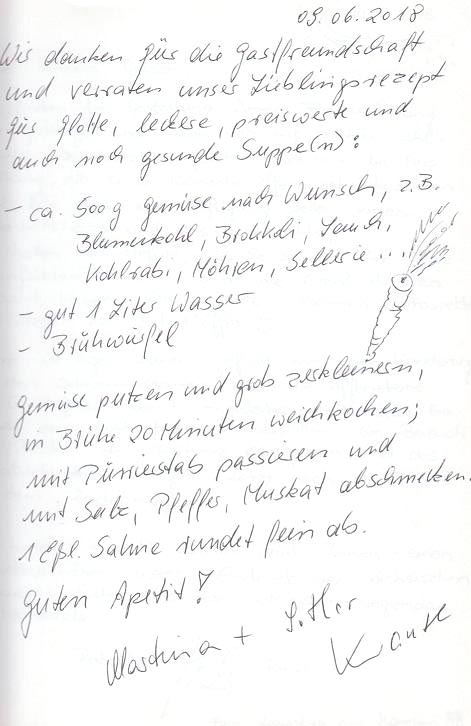 09.06.2018
Wir danken für die Gastfreundschaft
und verraten unser Lieblingsrezept
für flotte, leckere, preiswerte und
auch noch gesunde Suppe(n):
- ca. 500 g Gemüse nach Wunsch, z.B.
Blumenkohl, Brokkoli, Lauch,
Kohlrabi, Möhren, Sellerie ...
- gut 1 Liter Wasser
- Brühwürfel
Gemüse putzen und grob zerkleinern,
in Brühe 20 Minuten weichkochen;
mit Pürrierstab passieren und
mit Salz, Pfeffer, Muskat abschmecken.
1 Eßl. Sahne rundet fein ab.
Guten Apetit!
Martina + Lothar
Krause